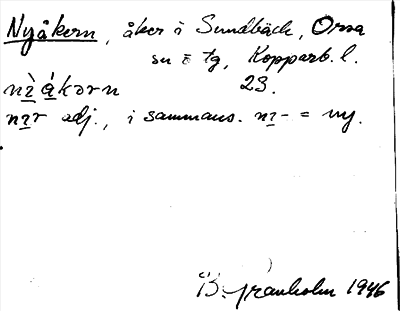 Nyåkern, åker i Sundbäck, Orsa
sn o tg, Kopparb. l.
nɪ̀ ákərn 23.
nɪr adj., i sammans. nɪ- = ny.
B. Granholm 1946